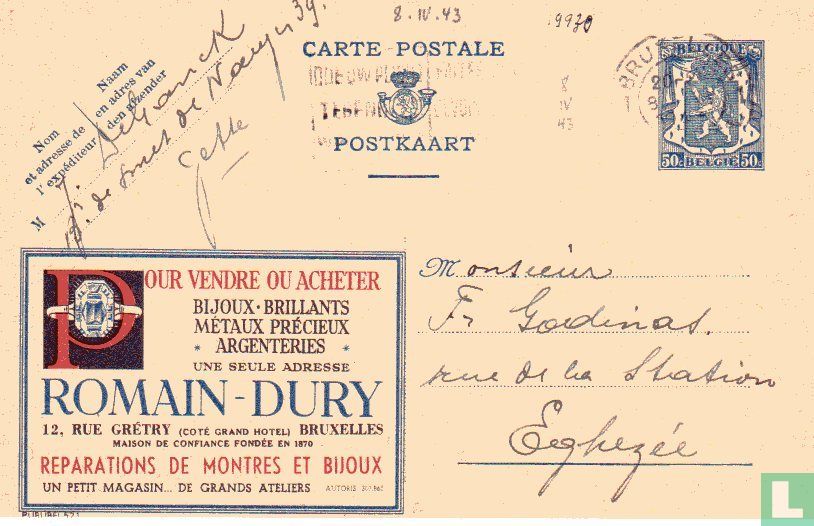 8 · IV · 43
CARTE POSTALE
POSTKAART
Nom
et adresse de
l'expéditeur
Naam
en adres van
den afzender
M
Bd de Smet de Nayer 39
Jette
BRU
20
8
8
IV
43
BELGIQUE
50c BELGIË 50c
POUR VENDRE OU ACHETER
BIJOUX · BRILLANTS
MÉTAUX PRÉCIEUX
* ARGENTERIES *
UNE SEULE ADRESSE
ROMAIN-DURY
12, RUE GRÉTRY (COTÉ GRAND HOTEL) BRUXELLES
MAISON DE CONFIANCE FONDÉE EN 1870
REPARATIONS DE MONTRES ET BIJOUX
UN PETIT MAGASIN... DE GRANDS ATELIERS
Monsieur
Fr Godinas.
rue de la Station
Eghezée
PUBLIBEL 521
L